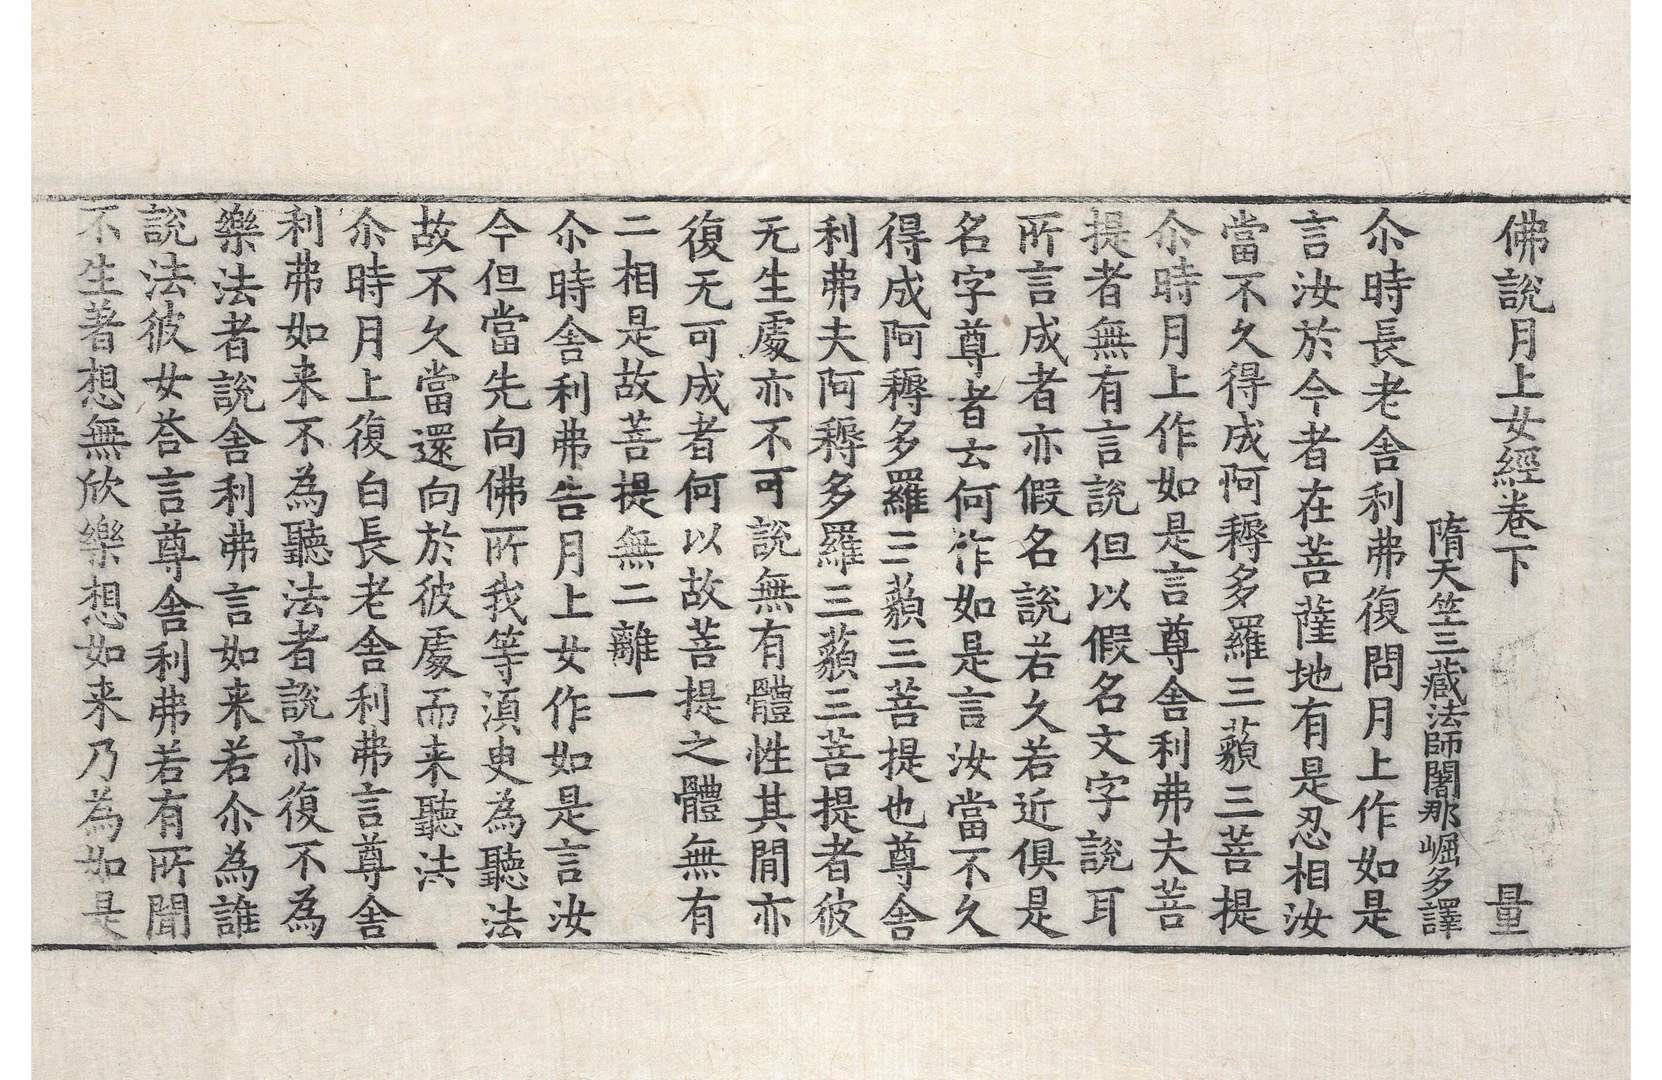 佛說月上女經卷下 量
隋天竺三藏法師闍那崛多譯
尒時長老舍利弗復問月上作如是
言汝於今者在菩薩地有是忍相汝
當不久得成阿耨多羅三藐三菩提
尒時月上作如是言尊舍利弗夫菩
提者無有言說但以假名文字說耳
所言成者亦假名說若久若近俱是
名字尊者云何作如是言汝當不久
得成阿耨多羅三藐三菩提也尊舍
利弗夫阿耨多羅三藐三菩提者彼
无生處亦不可說無有體性其間亦
復无可成者何以故菩提之體無有
二相是故菩提無二離一
尒時舍利弗告月上女作如是言汝
今但當先向佛所我等湏㬰為聽法
故不久當還向於彼處而来聽法
尒時月上復白長老舍利弗言尊舍
利弗如来不為聽法者說亦復不為
樂法者說舍利弗言如来若尒為誰
說法彼女荅言尊舍利弗若有所聞
不生著想無欣樂想如来乃為如是